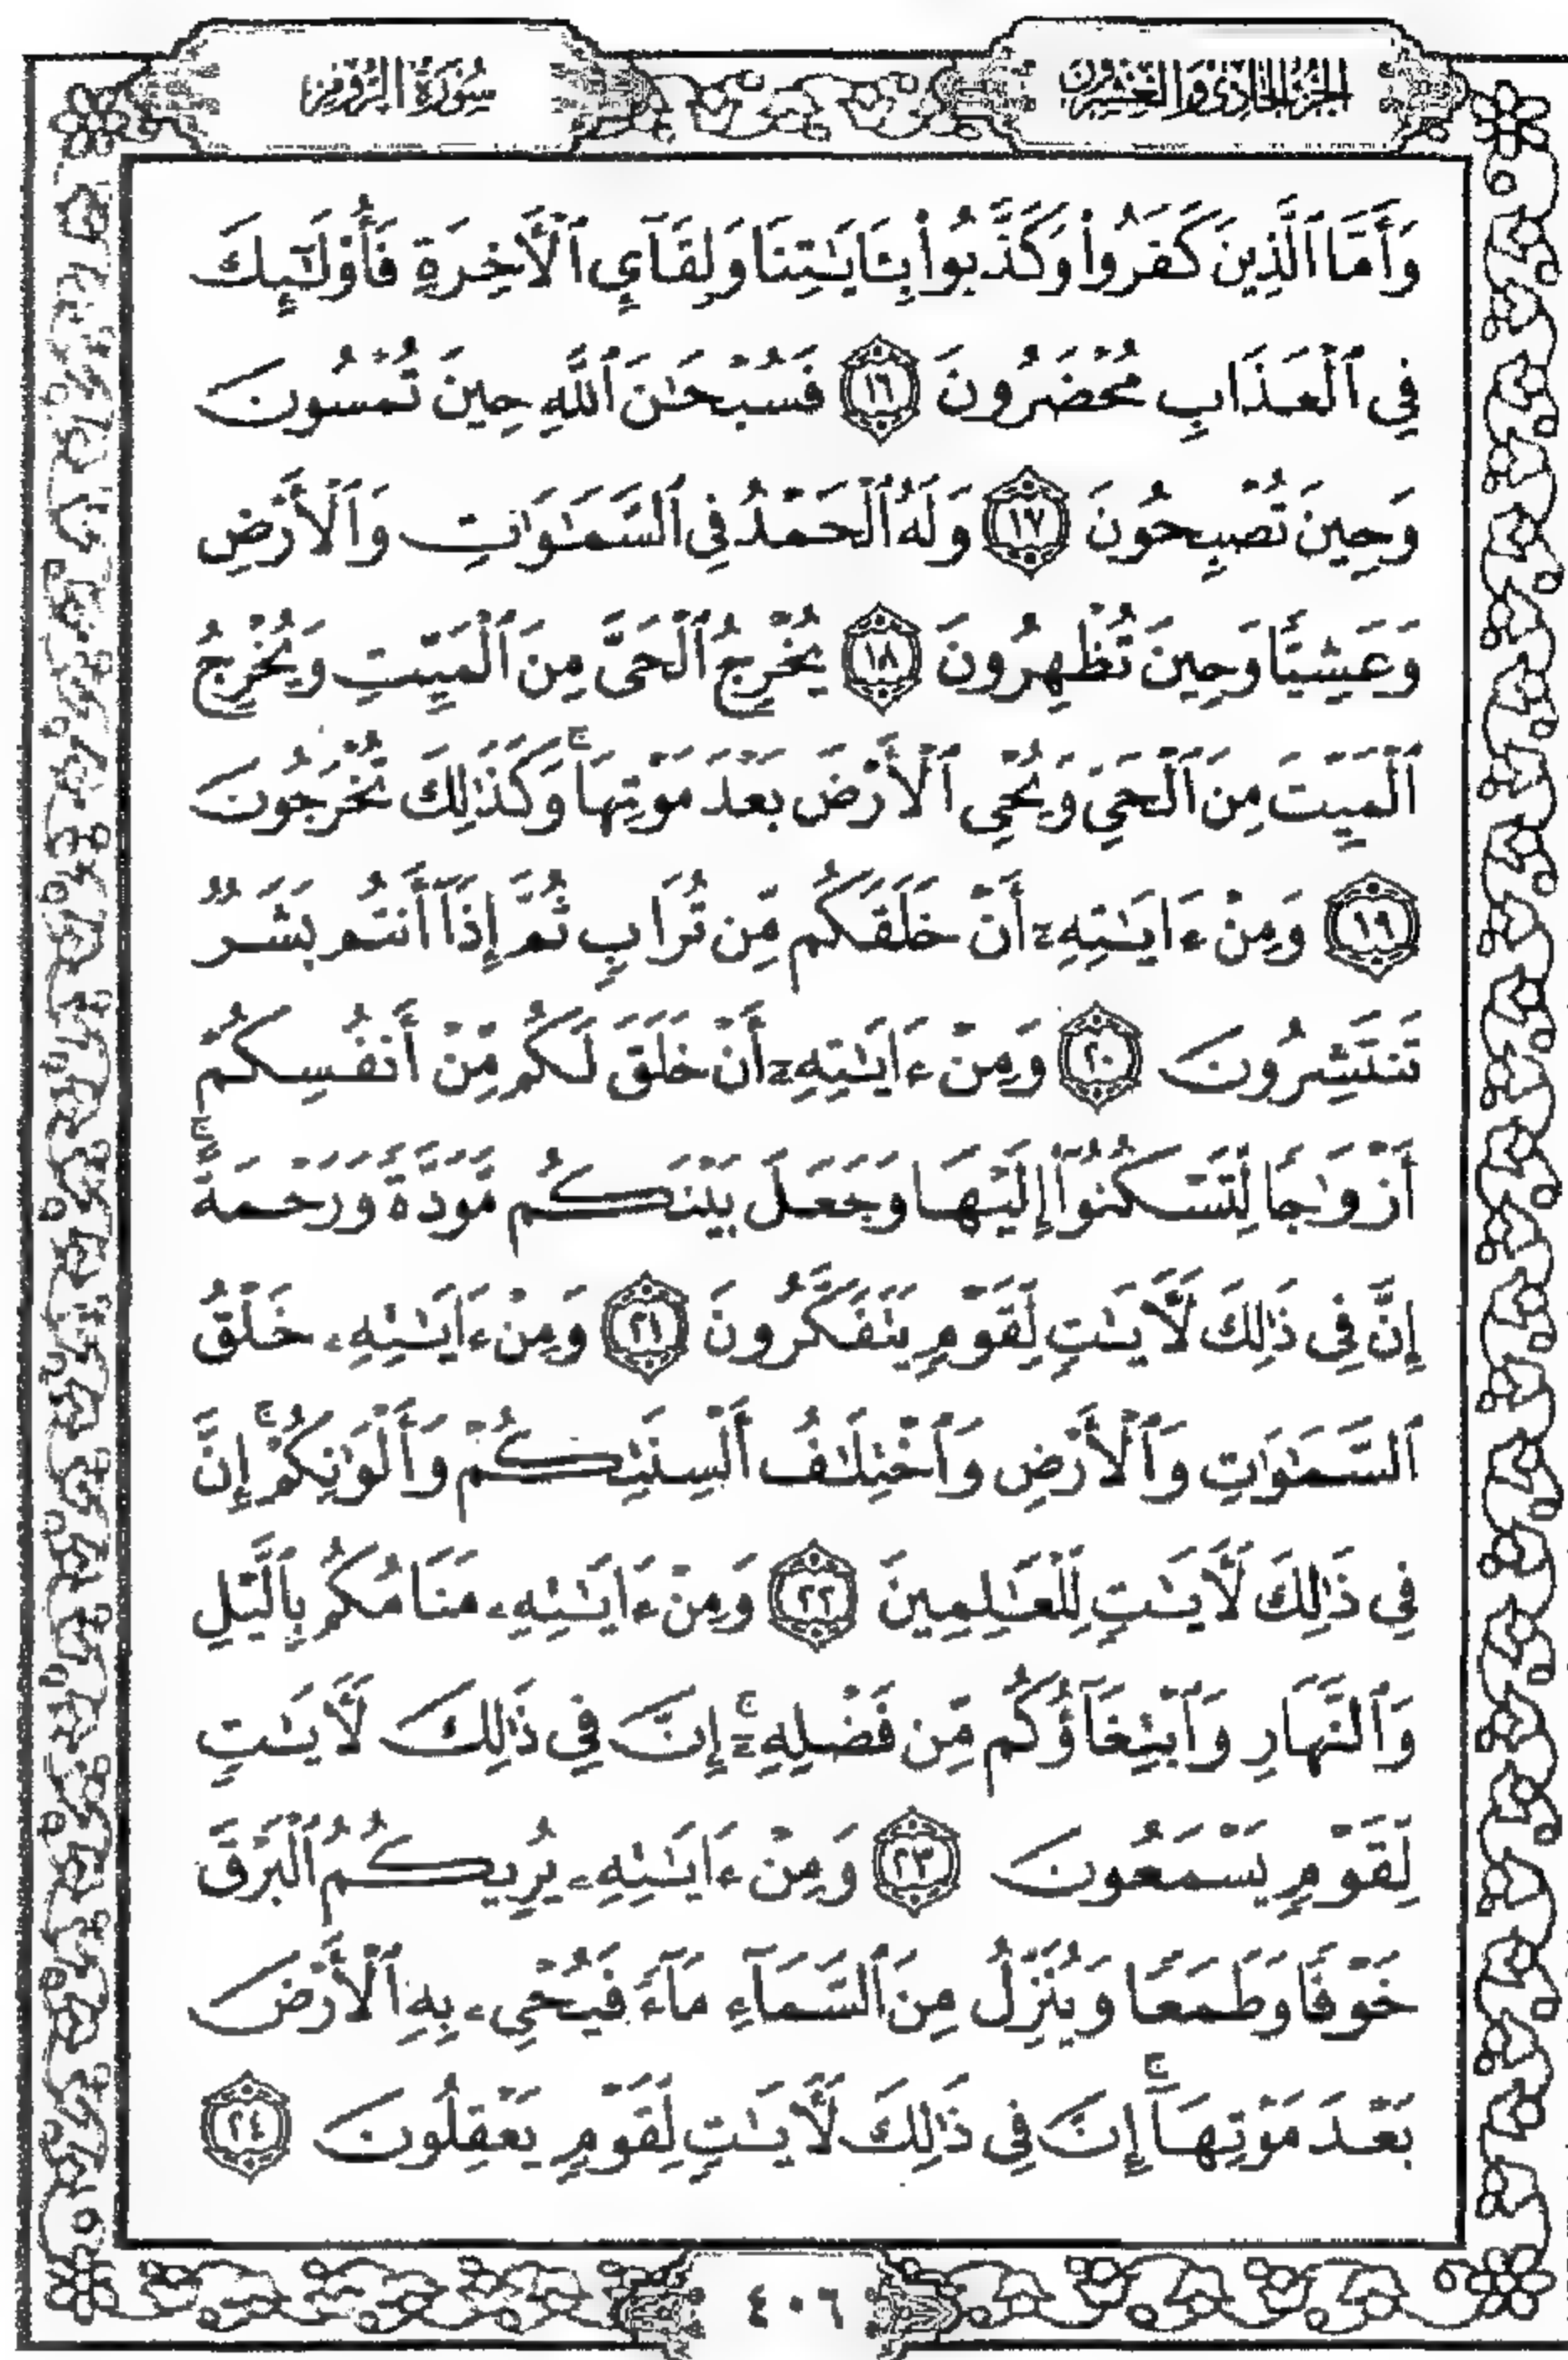 الجزء الحادي والعشرون
سورة الروم
وَأَمَّا ٱلَّذِينَ كَفَرُوا۟ وَكَذَّبُوا۟ بِـَٔايَـٰتِنَا وَلِقَآئِ ٱلْـَٔاخِرَةِ فَأُو۟لَـٰٓئِكَ
فِي ٱلْعَذَابِ مُحْضَرُونَ ١٦ فَسُبْحَـٰنَ ٱللَّهِ حِينَ تُمْسُونَ
وَحِينَ تُصْبِحُونَ ١٧ وَلَهُ ٱلْحَمْدُ فِي ٱلسَّمَـٰوَٰتِ وَٱلْأَرْضِ
وَعَشِيًّا وَحِينَ تُظْهِرُونَ ١٨ يُخْرِجُ ٱلْحَىَّ مِنَ ٱلْمَيِّتِ وَيُخْرِجُ
ٱلْمَيِّتَ مِنَ ٱلْحَىِّ وَيُحْىِ ٱلْأَرْضَ بَعْدَ مَوْتِهَا ۚ وَكَذَٰلِكَ تُخْرَجُونَ
١٩ وَمِنْ ءَايَـٰتِهِۦٓ أَنْ خَلَقَكُم مِّن تُرَابٍ ثُمَّ إِذَآ أَنتُم بَشَرٌ
تَنتَشِرُونَ ٢٠ وَمِنْ ءَايَـٰتِهِۦٓ أَنْ خَلَقَ لَكُم مِّنْ أَنفُسِكُمْ
أَزْوَٰجًا لِّتَسْكُنُوٓا۟ إِلَيْهَا وَجَعَلَ بَيْنَكُم مَّوَدَّةً وَرَحْمَةً ۚ
إِنَّ فِي ذَٰلِكَ لَـَٔايَـٰتٍ لِّقَوْمٍ يَتَفَكَّرُونَ ٢١ وَمِنْ ءَايَـٰتِهِۦ خَلْقُ
ٱلسَّمَـٰوَٰتِ وَٱلْأَرْضِ وَٱخْتِلَـٰفُ أَلْسِنَتِكُمْ وَأَلْوَٰنِكُمْ ۚ إِنَّ
فِي ذَٰلِكَ لَـَٔايَـٰتٍ لِّلْعَـٰلِمِينَ ٢٢ وَمِنْ ءَايَـٰتِهِۦ مَنَامُكُم بِٱلَّيْلِ
وَٱلنَّهَارِ وَٱبْتِغَآؤُكُم مِّن فَضْلِهِۦٓ ۚ إِنَّ فِي ذَٰلِكَ لَـَٔايَـٰتٍ
لِّقَوْمٍ يَسْمَعُونَ ٢٣ وَمِنْ ءَايَـٰتِهِۦ يُرِيكُمُ ٱلْبَرْقَ
خَوْفًا وَطَمَعًا وَيُنَزِّلُ مِنَ ٱلسَّمَآءِ مَآءً فَيُحْىِۦ بِهِ ٱلْأَرْضَ
بَعْدَ مَوْتِهَآ ۚ إِنَّ فِي ذَٰلِكَ لَـَٔايَـٰتٍ لِّقَوْمٍ يَعْقِلُونَ ٢٤
٤٠٦